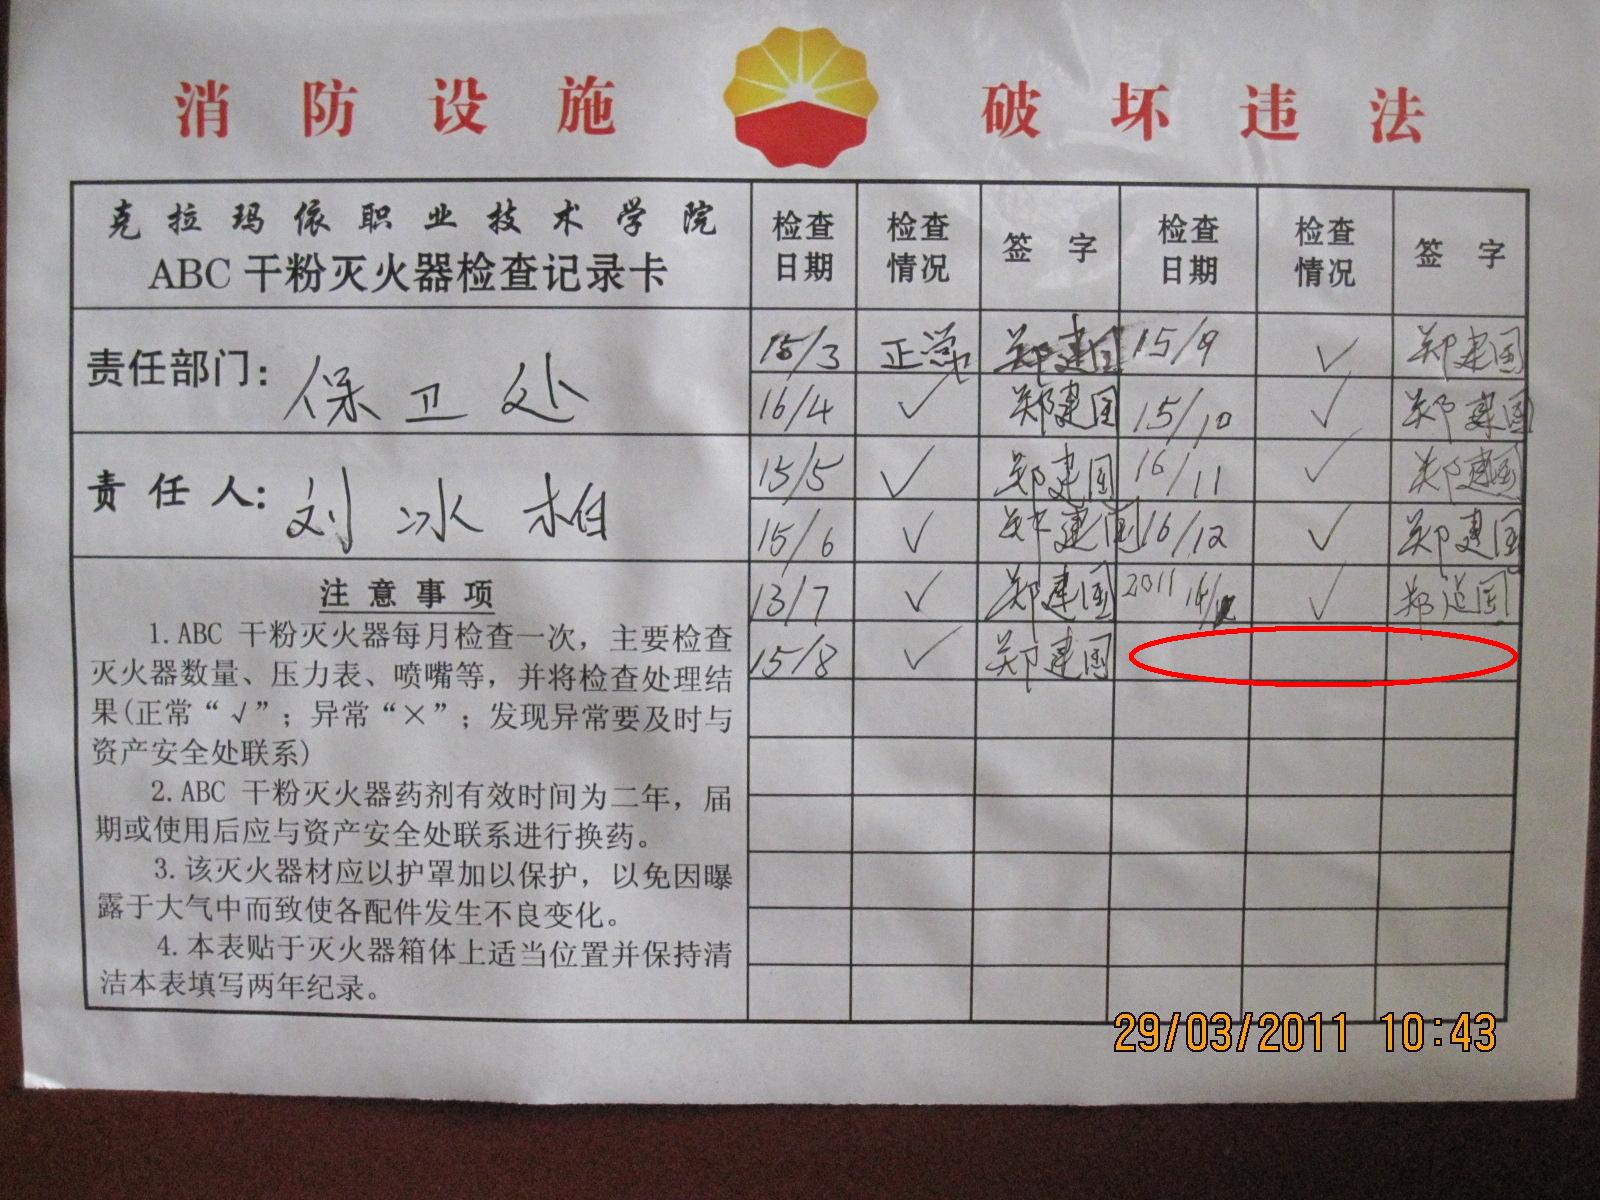 消防设施 破坏违法
克拉玛依职业技术学院
ABC干粉灭火器检查记录卡
检查日期 检查情况 签字 检查日期 检查情况 签字
责任部门：保卫处
责任人：刘冰柏
15/3 正常 郑建国 15/9 ✓ 郑建国
16/4 ✓ 郑建国 15/10 ✓ 郑建国
15/5 ✓ 郑建国 16/11 ✓ 郑建国
15/6 ✓ 郑建国 16/12 ✓ 郑建国
13/7 ✓ 郑建国 2011 ✓ 郑建国
15/8 ✓ 郑建国
注意事项
1.ABC 干粉灭火器每月检查一次，主要检查
灭火器数量、压力表、喷嘴等，并将检查处理结
果(正常“√”；异常“×”；发现异常要及时与
资产安全处联系)
2.ABC 干粉灭火器药剂有效时间为二年，届
期或使用后应与资产安全处联系进行换药。
3.该灭火器材应以护罩加以保护，以免因曝
露于大气中而致使各配件发生不良变化。
4.本表贴于灭火器箱体上适当位置并保持清
洁本表填写两年纪录。
29/03/2011 10:43